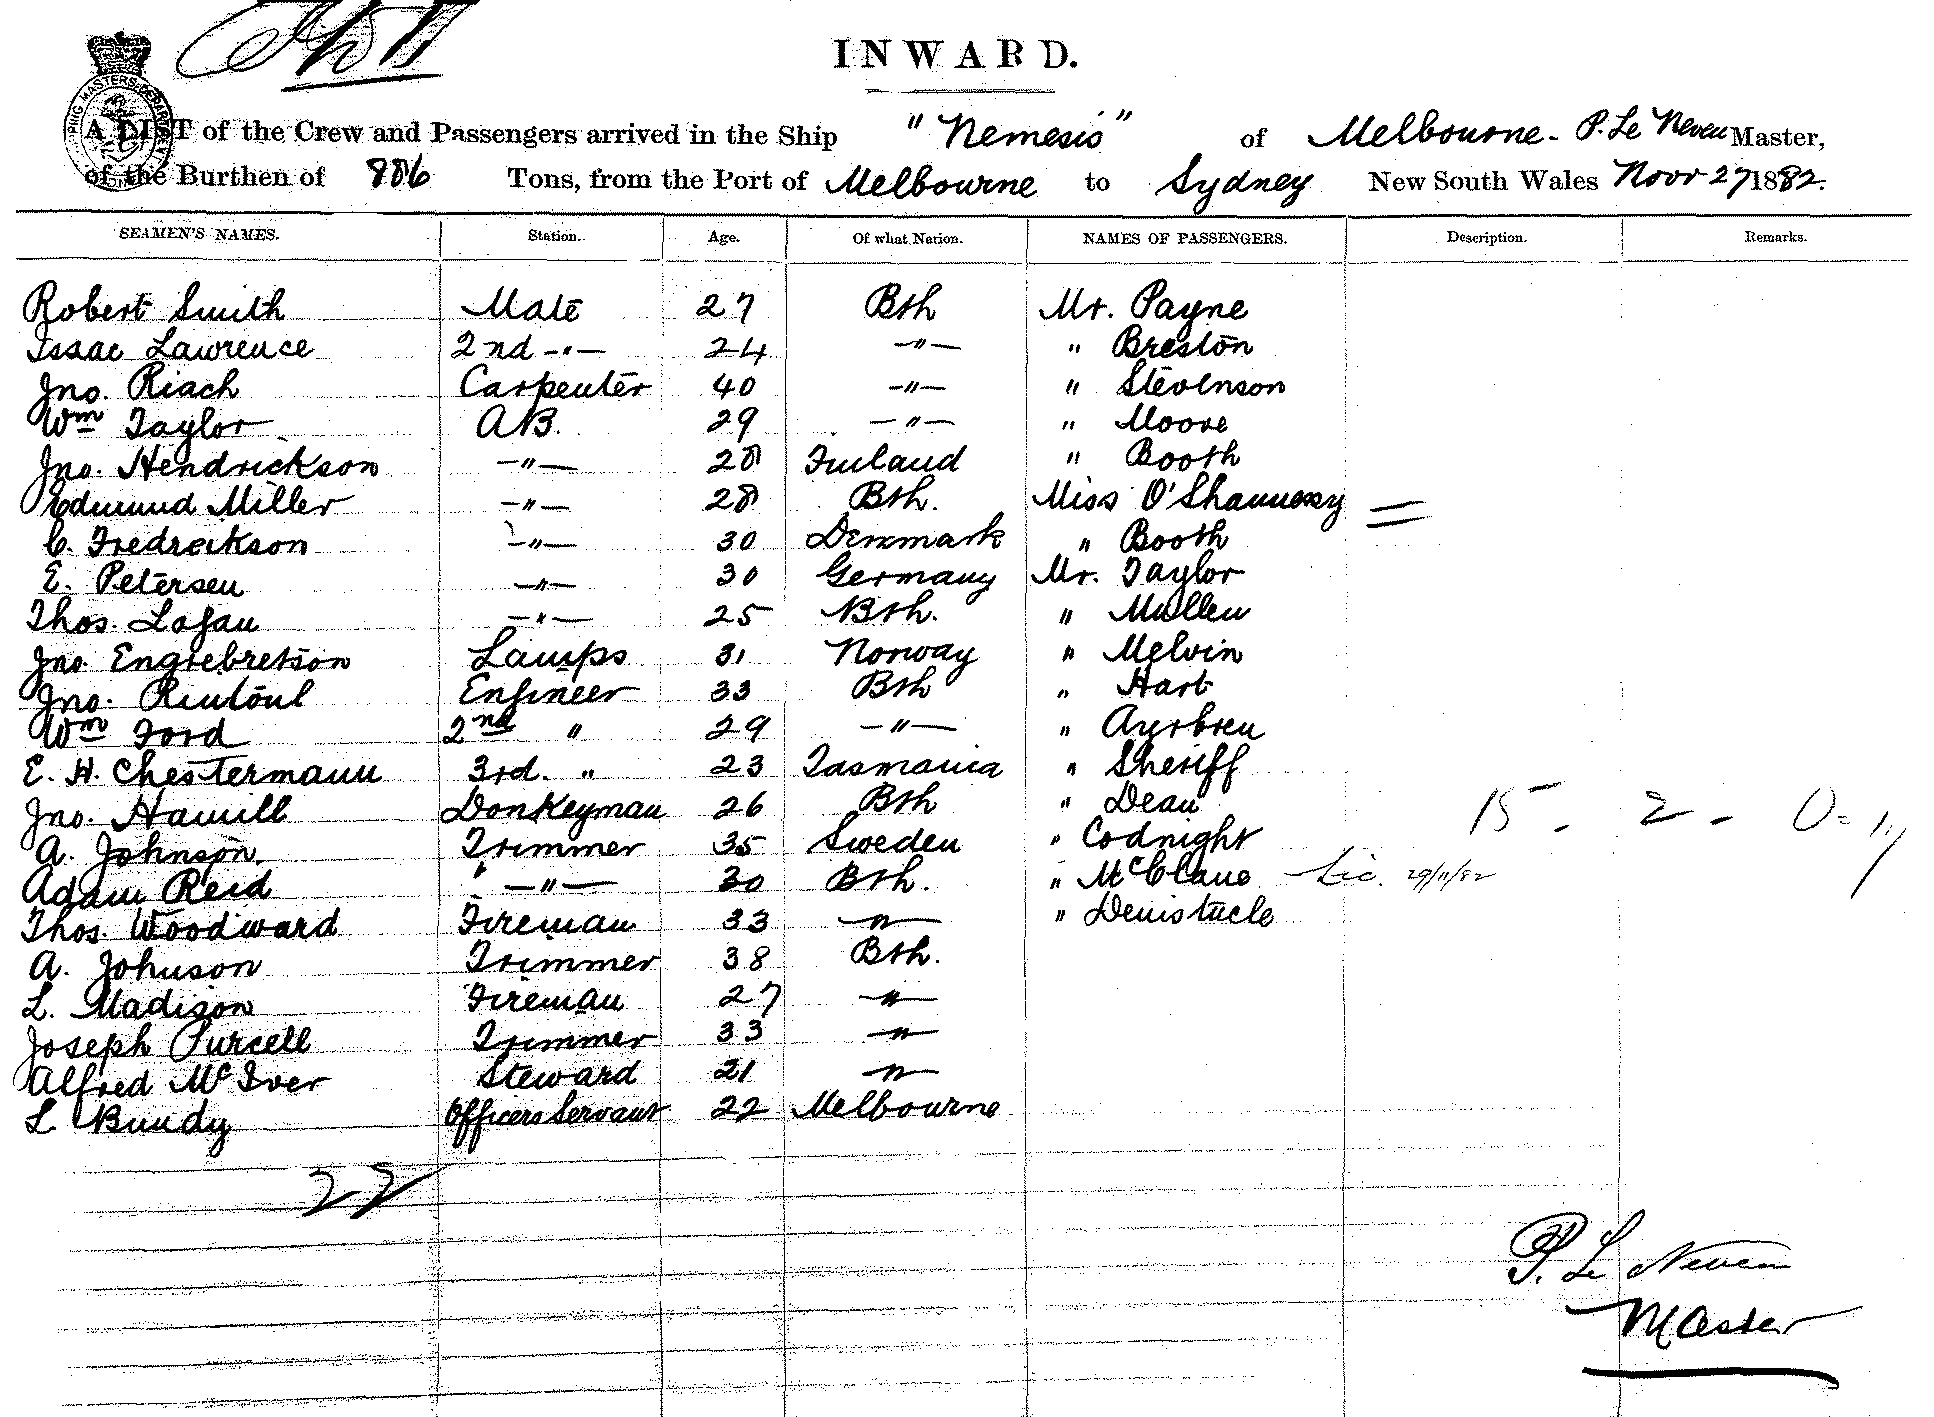 INWARD.
A LIST of the Crew and Passengers arrived in the Ship "Nemesis" of Melbourne - P. Le Neveu Master,
of the Burthen of 886 Tons, from the Port of Melbourne to Sydney New South Wales Novr 27 1882.
SEAMEN'S NAMES. Station. Age. Of what Nation. NAMES OF PASSENGERS. Description. Remarks.
Robert Smith Mate 27 Bsh Mr. Payne
Issac Lawrence 2nd -"- 24 -"- " Breston
Jno. Riach Carpenter 40 -"- " Stevenson
Wm Taylor AB. 29 -"- " Moore
Jno. Hendrickson -"- 28 Finland " Booth
Edmund Miller -"- 28 Bsh. Miss O'Shannessy =
C. Fredreckson -"- 30 Denmark " Booth
E. Petersen -"- 30 Germany Mr. Taylor
Thos. Logan -"- 25 Bsh. " Mullen
Jno. Engrebretson Lamps 31 Norway " Melvin
Jno. Rintoul Engineer 33 Bsh " Hart
Wm Ford 2nd " 29 -"- " Ayrbren
E. H. Chestermann 3rd. " 23 Tasmania " Sheriff
Jno. Hamill Donkeyman 26 Bsh " Dean 15 - 2 - 0 =
A. Johnson. Trimmer 35 Sweden " Codnight
Adam Reid " -"- 30 Bsh. " McClane Lic. 29/11/82
Thos. Woodward Fireman 33 -"- "
A. Johnson Trimmer 38 Bsh.
L. Madison Fireman 27 -"-
Joseph Purcell Trimmer 33 -"-
Alfred McIver Steward 21 -"-
L Bundy Officers Servant 22 Melbourne
22
P. Le Neveu
Master